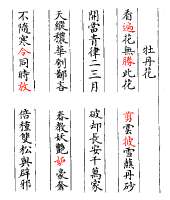 牡丹花
看遍花無勝此花
剪雲披雪蘸丹砂
開當青律二三月
破却長安千萬家
天縱穠華刳鄙吝
春教妖艷妬豪奢
不隨寒令同時放
倍種雙松與辟邪